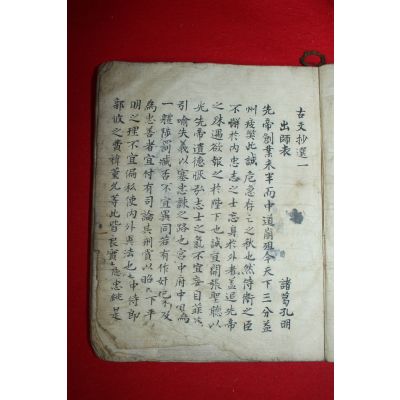 古文抄選一
出師表 諸葛孔明
先帝創業未半而中道崩殂今天下三分益
州疲弊此誠危急存亡之秋也然侍衛之臣
不懈於內忠志之士忘身於外者蓋追先帝
之殊遇欲報之於陛下也誠宜開張聖聽以
光先帝遺德恢弘志士之氣不宜妄自菲薄
引喩失義以塞忠諫之路也宮中府中俱為
一體陟罰臧否不宜異同若有作奸犯科及
為忠善者宜付有司論其刑賞以昭陛下平
明之理不宜偏私使內外異法也侍中侍郎
郭攸之費褘董允等此皆良實志慮忠純是